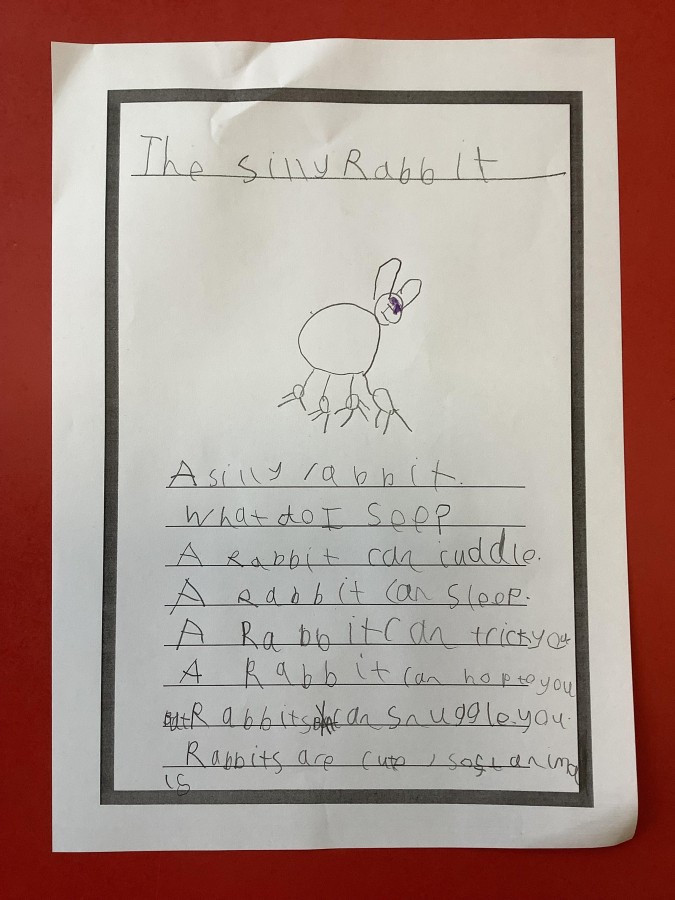 The silly Rabbit
A silly rabbit.
What do I see?
A Rabbit can cuddle.
A Rabbit can sleep.
A Rabbit can trick you
A Rabbit can hop to you
Rabbits can snuggle you.
Rabbits are cute, soft anima
ls